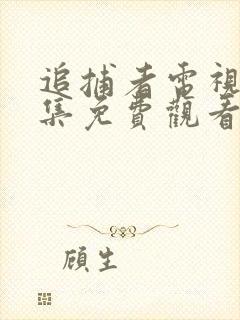 追捕者電視
集免費觀看
顧生